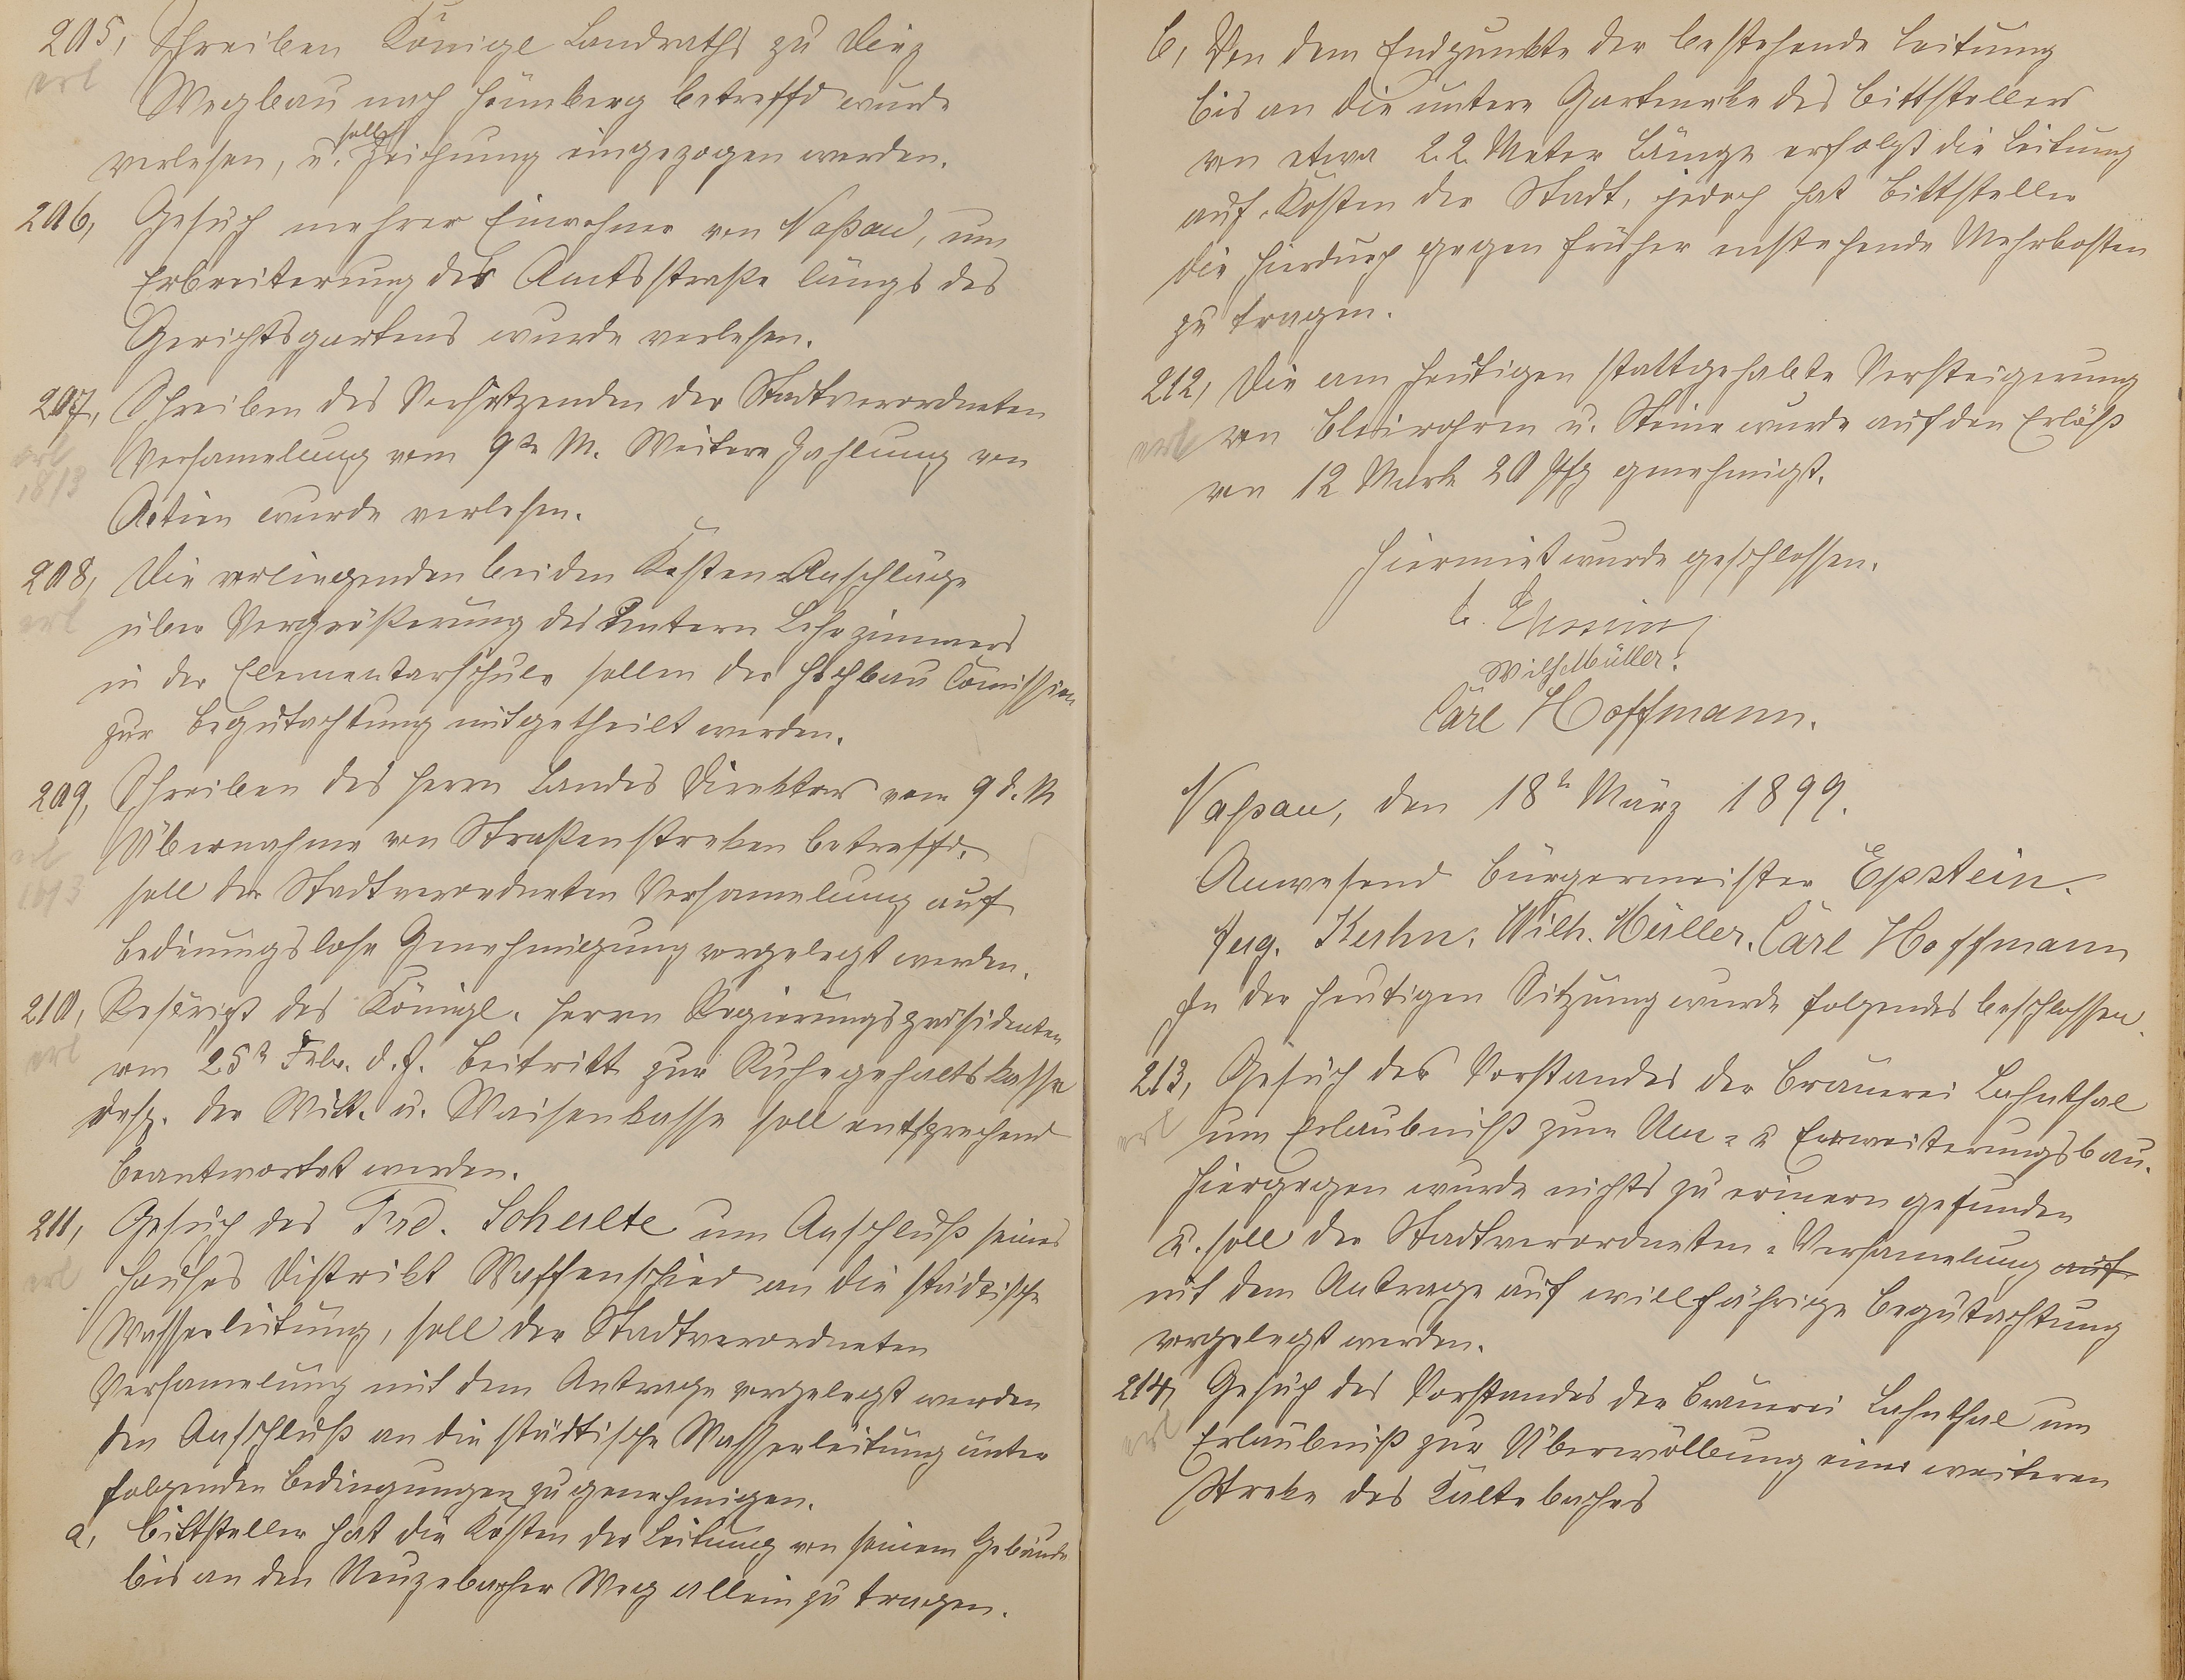 205, Schreiben Königl Landraths zu Diez
erl
Wegbau nach Hömberg betreffd wurde
soll
verlesen, u. Zeichnung eingezogen werden.
206, Gesuch mehrer Einwohner von Naßau, um
Erbreiterung der Amtsstraße längs des
Gerichtsgartens wurde verlesen.
207, Schreiben des Vorsitzenden der Stadtverordneten
erl
18/3
Versamelung vom 9 d. M. Weitere Zahlung von
Actien wurde verlesen.
208, Die vorliegenden beiden Kosten Anschläge
erl
über Vergrößerung des untern Lehrzimmers
in der Elementarschule sollen der Hochbau Comission
zur Begutachtung mitgetheilt werden.
209, Schreiben des Herrn Landes Direktor vom 9 d. M
erl
18/3
Übernahme von Straßenstreken betreffd.
soll der Stadtverordneten Versamelung auf
bedinungslose Genehmigung vorgelegt werden.
210, Rescript des Königl. Herrn Regierungspräsidenten
erl
vom 25n Febr. d. J. Beitritt zur Ruhegehaltskasse
resp. der Witt. u. Waisenkasse soll entsprechend
beantwortet werden.
211, Gesuch des Frd. Schulte um Anschluß seines
erl
Hauses Distrikt Waffenschied an die städtische
Wasserleitung, soll der Stadtverordneten
Versamelung mit dem Antrage vorgelegt werden
den Anschluß an die städtische Wasserleitung unter
folgenden Bedingungen zu genehmigen.
a, Bittsteller hat die Kosten der Leitung von seinem Gebäude
bis an den Neuzebacher Weg allein zu tragen.
b, Von dem Endpunkte der bestehende Leitung
bis an die untere Gartenecke des Bittstellers
von etwa 22 Meter Länge erfolgt die Leitung
auf Kosten der Stadt, jedoch hat Bittsteller
die hierdurch gegen früher enstehende Mehrkosten
zu tragen.
212, Die am heutigen stattgehabte Versteigerung
erl
von Bleirohren u. Steine wurde auf den Erlöß
von 12 Mark 20 Pfg genehmigt.
Hiermit wurde geschlossen.
Wilh Müller.
Carl Hoffmann.
Naßau, den 18t März 1899.
Anwesend Bürgermeister Epstein.
Aug. Kuhn, Wilh. Müller, Carl Hoffmann
In der heutigen Sitzung wurde folgendes beschlossen.
213, Gesuch des Vorstandes der Brauerei Lahnthal
erl
um Erlaubniß zum Um- u Erweiterungsbau.
Hiergegen wurde nichts zu erinnern gefunden
u. soll der Stadtverordneten-Versamelung auf
mit dem Antrage auf willfährige Begutachtung
vorgelegt werden.
214, Gesuch des Vorstandes der Brauerei Lahnthal um
erl
Erlaubniß zur Überwölbung einer weiteren
Streke des Kaltebaches